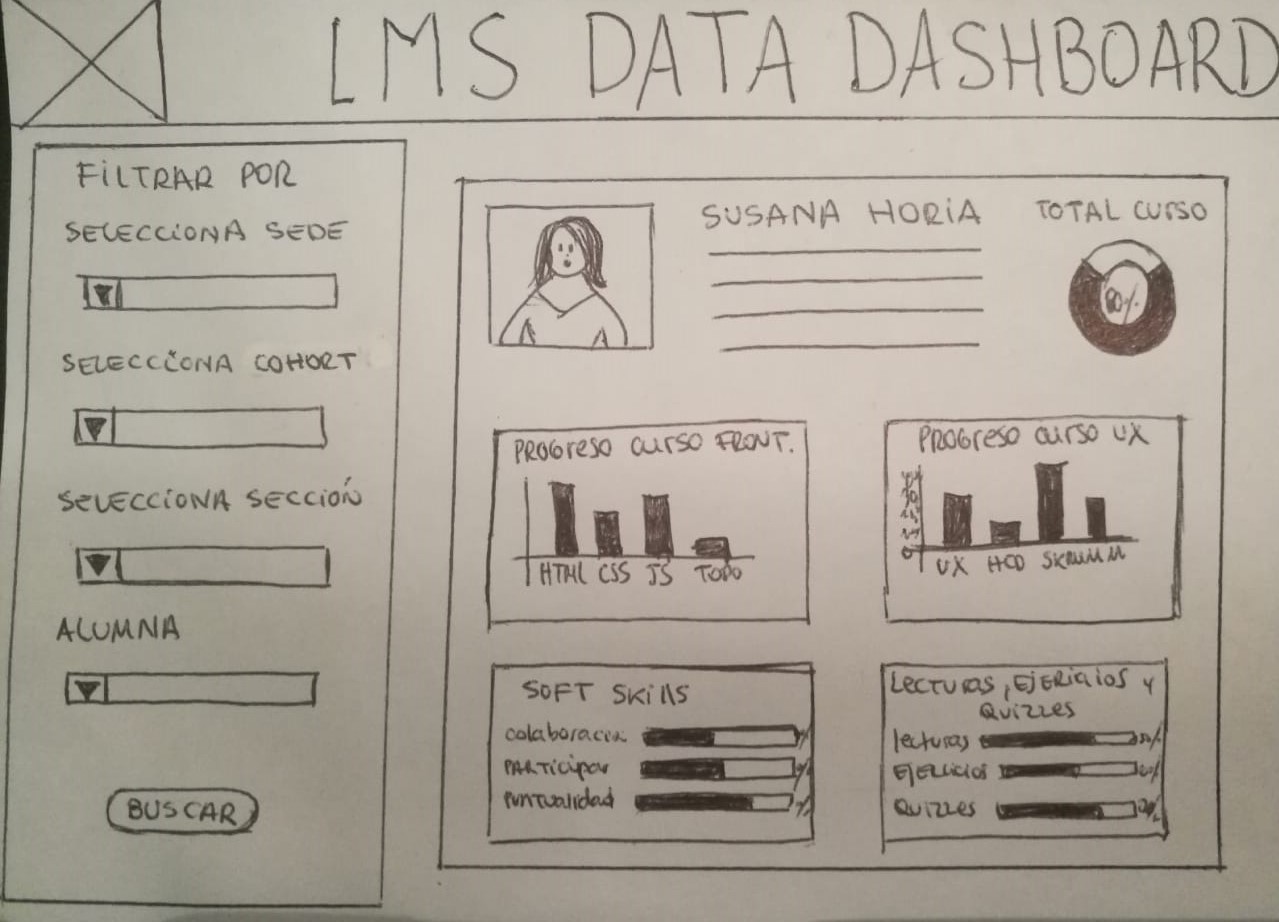 LMS DATA DASHBOARD
FILTRAR POR
SELECCIONA SEDE
SELECCIONA COHORT
SELECCIONA SECCIÓN
ALUMNA
BUSCAR
SUSANA HORIA
TOTAL CURSO
80%
PROGRESO CURSO FRONT.
HTML CSS JS TODO
PROGRESO CURSO UX
0
UX HCD SKRUMM
SOFT SKills
colaboracin
PARTICIPAR
PUNTUALIDAD
LECTURAS, EJERICIOS Y
QUIZZES
lecturas
EJERCICIOS
QUIZZES